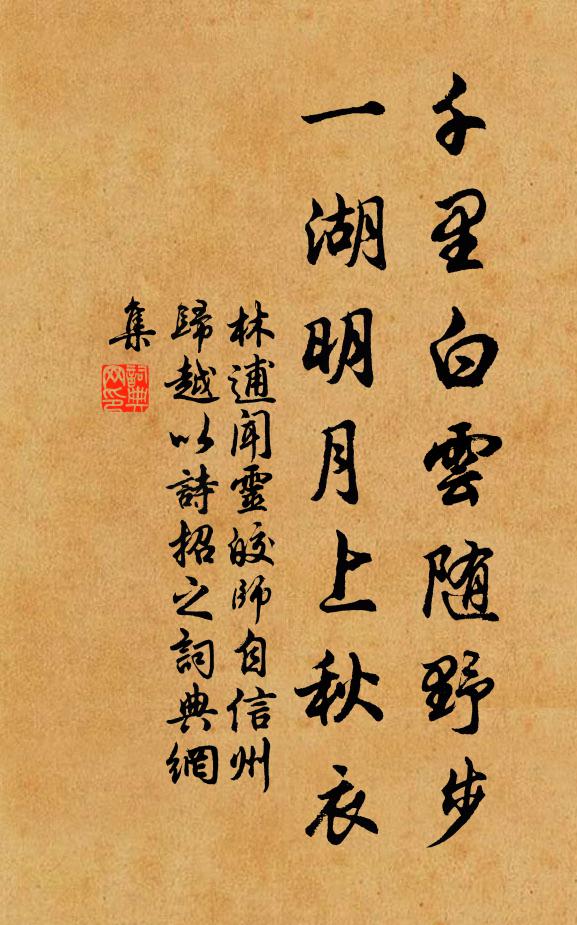 千里白雲随野步
一湖明月上秋衣
林逋闻靈皎師自信州
歸越以詩招之詞典網
集
詞典
网印